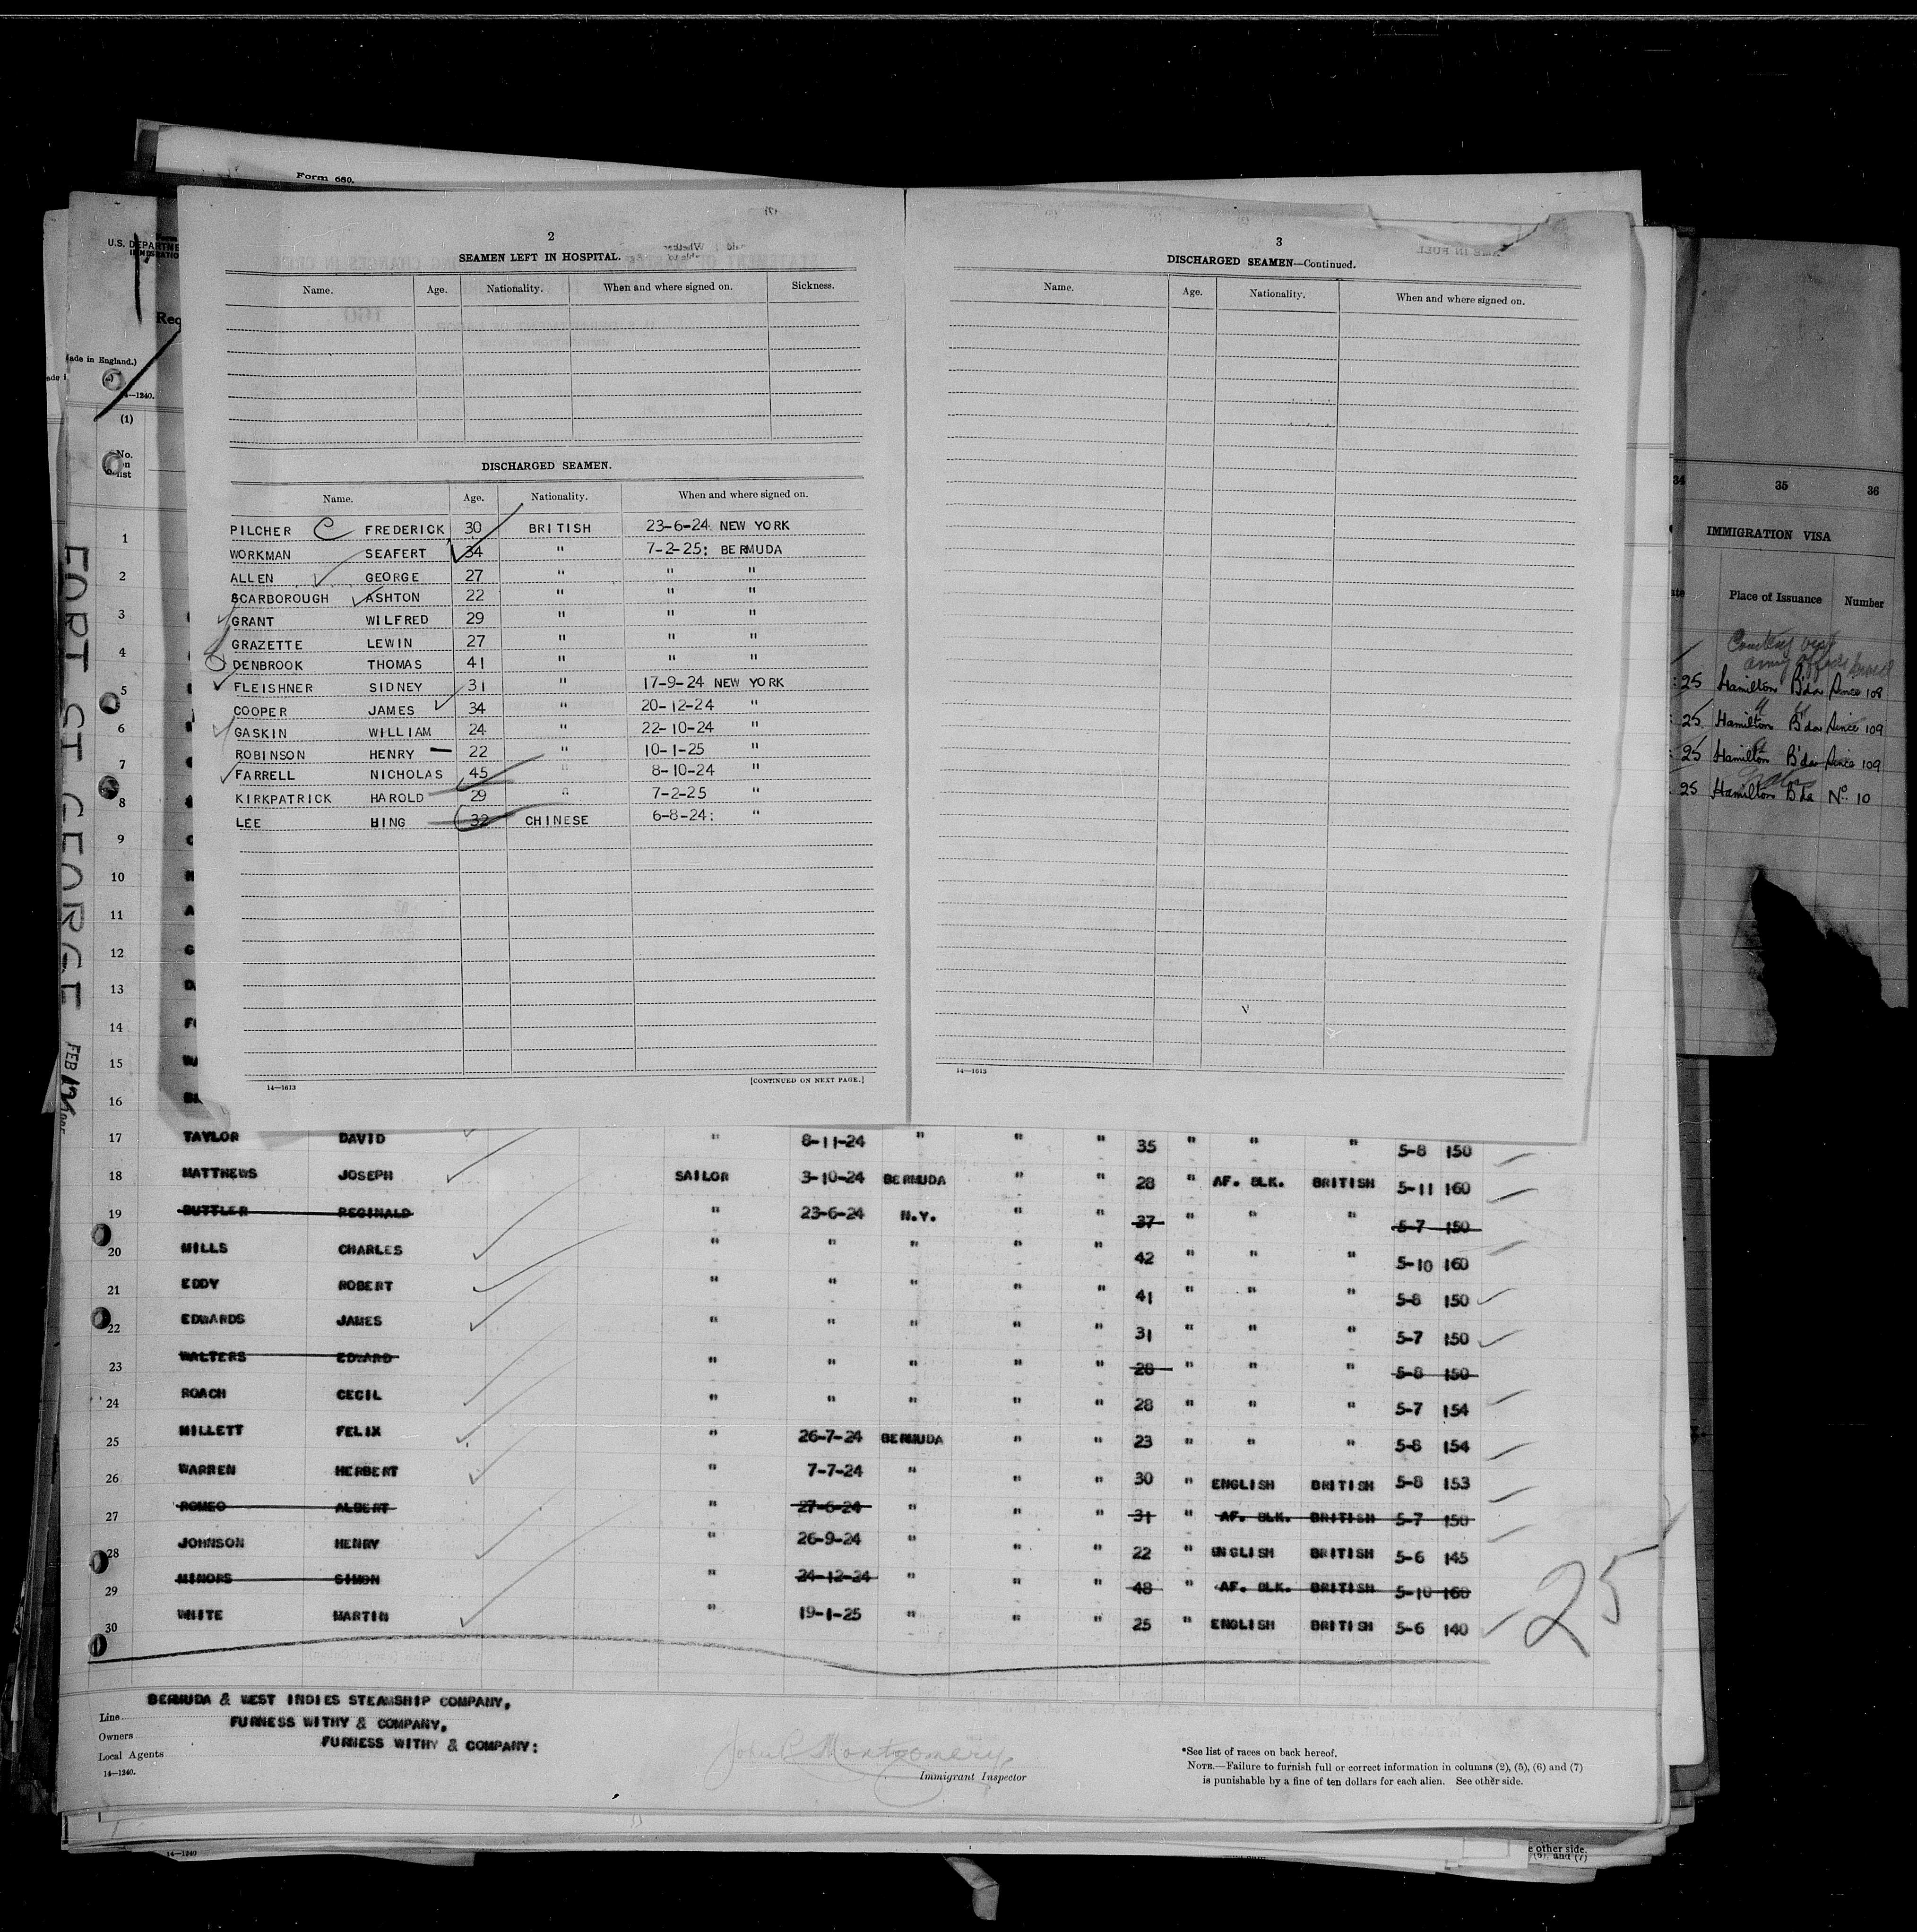 Form 680.
2
SEAMEN LEFT IN HOSPITAL.
Name. Age. Nationality. When and where signed on. Sickness.
DISCHARGED SEAMEN.
Name. Age. Nationality. When and where signed on.
PILCHER C FREDERICK 30 BRITISH 23-6-24 NEW YORK
WORKMAN SEAFERT 34 " 7-2-25: BERMUDA
ALLEN GEORGE 27 " " "
SCARBOROUGH ASHTON 22 " " "
GRANT WILFRED 29 " " "
GRAZETTE LEWIN 27 " " "
DENBROOK THOMAS 41 " " "
FLEISHNER SIDNEY 31 " 17-9-24 NEW YORK
COOPER JAMES 34 " 20-12-24 "
GASKIN WILLIAM 24 " 22-10-24 "
ROBINSON HENRY 22 " 10-1-25 "
FARRELL NICHOLAS 45 " 8-10-24 "
KIRKPATRICK HAROLD 29 " 7-2-25 "
LEE HING 32 CHINESE 6-8-24: "
14—1613 [CONTINUED ON NEXT PAGE.]
3
DISCHARGED SEAMEN—Continued.
Name. Age. Nationality. When and where signed on.
14—1613
U.S. DEPARTME
IMMIGRATIO
Rec
ade in England.)
14—1240.
(1)
No.
on
list
1
2
3
4
5
6
7
8
9
10
11
12
13
14
15
16
FORT ST GEORGE FEB 12
34 35 36
IMMIGRATION VISA
Place of Issuance Number
25 Hamilton B'da Since 108
25 Hamilton B'da Since 109
25 Hamilton B'da Since 109
25 Hamilton B'da No. 10
17 TAYLOR DAVID " 8-11-24 " " " 35 " " " 5-8 150
18 MATTHEWS JOSEPH SAILOR 3-10-24 BERMUDA " " 28 " AF. BLK. BRITISH 5-11 160
19 BUTTLER REGINALD " 23-6-24 N.Y. " " 37 " " " 5-7 150
20 MILLS CHARLES " " " " " 42 " " " 5-10 160
21 EDDY ROBERT " " " " " 41 " " " 5-8 150
22 EDWARDS JAMES " " " " " 31 " " " 5-7 150
23 WALTERS EDWARD " " " " " 28 " " " 5-8 150
24 ROACH CECIL " " " " " 28 " " " 5-7 154
25 MILLETT FELIX " 26-7-24 BERMUDA " " 23 " " " 5-8 154
26 WARREN HERBERT " 7-7-24 " " " 30 " ENGLISH BRITISH 5-8 153
27 ROMEO ALBERT " 27-6-24 " " " 31 " AF. BLK. BRITISH 5-7 150
28 JOHNSON HENRY " 26-9-24 " " " 22 " ENGLISH BRITISH 5-6 145
29 MINORS SIMON " 24-12-24 " " " 48 " AF. BLK. BRITISH 5-10 160
30 WHITE MARTIN " 19-1-25 " " " 25 " ENGLISH BRITISH 5-6 140
25
Line BERMUDA & WEST INDIES STEAMSHIP COMPANY,
Owners FURNESS WITHY & COMPANY,
Local Agents FURNESS WITHY & COMPANY:
14—1240.
John P. Montgomery
Immigrant Inspector
*See list of races on back hereof.
NOTE.—Failure to furnish full or correct information in columns (2), (5), (6) and (7)
is punishable by a fine of ten dollars for each alien. See other side.
14—1240
e other side.
(6), and (7)